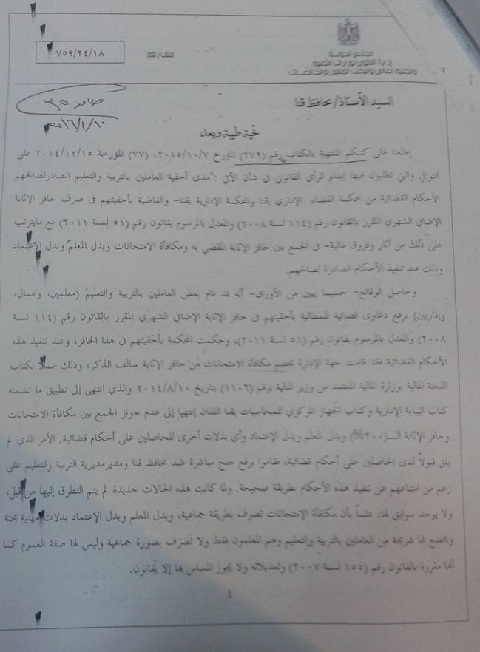 ٧٥٩/٢٤/١٨
السيد الأستاذ/ محافظ قنا
تحية طيبة وبعد
إطلعنا على كتبكم المنتهية بالكتاب رقم (٢٧٩) المؤرخ ٢٠١٥/١٠/٧، (٧٧) المؤرخة ٢٠١٤/١٢/١٥ على
التوالي والتي تطلبون فيها إبداء الرأي القانوني في شأن الآتي: "مدى أحقية العاملين بالتربية والتعليم الصادر لصالحهم
الأحكام القضائية من محكمة القضاء الإداري بقنا والمحكمة الإدارية بقنا- والقاضية بأحقيتهم في صرف حافز الإثابة
الإضافي الشهري المقرر بالقانون رقم (١١٤ لسنة ٢٠٠٨) والمعدل بالمرسوم بقانون رقم (٥١ لسنة ٢٠١١) مع مايترتب
على ذلك من آثار وفروق مالية- في الجمع بين حافز الإثابة المقضي به ومكافأة الامتحانات وبدل المعلم وبدل الإعتماد
وذلك عند تنفيذ الأحكام الصادرة لصالحهم.
وحاصل الوقائع- حسبما يبين من الأوراق- أنه قد قام بعض العاملين بالتربية والتعليم (معلمين، وعمال،
وإداريين) برفع دعاوى قضائية للمطالبة بأحقيتهم في حافز الإثابة الإضافي الشهري المقرر بالقانون رقم (١١٤ لسنة
٢٠٠٨) والمعدل بالمرسوم بقانون رقم (٥١ لسنة ٢٠١١)، وحكمت المحكمة بأحقيتهم في هذه الحافز، وعند تنفيذ هذه
الأحكام القضائية فقد قامت جهة الإدارة بخصم مكافأة الامتحانات من حافز الإثابة سالف الذكر، وذلك عملاً بكتاب
الذمة المالية بوزارة المالية المعتمد من وزير المالية برقم (١١٠٦) بتاريخ ٢٠١٤/٨/١٠ والذي انتهى إلى تطبيق ما تضمنه
كتاب النيابة الإدارية وكتاب الجهاز المركزي للمحاسبات بقنا اللذان إنتهيا إلى عدم جواز الجمع بين مكافأة الامتحانات
وحافز الإثابة الـ(٢٠٠%) وبدل المعلم وبدل الإعتماد وأي بدلات أخرى للحاصلين على أحكام قضائية. الأمر الذي لم
يلق قبولاً لدى الحاصلين على أحكام قضائية، فقاموا برفع جنح مباشرة ضد محافظ قنا ومدير مديرية التربية والتعليم على
زعم من امتناعهم عن تنفيذ هذه الأحكام بطريقة صحيحة. ولما كانت هذه الحالات جديدة لم يتم التطرق إليها من قبل،
ولا يوجد سوابق لها، علماً بأن مكافأة الإمتحانات تصرف بطريقة جماعية، وبدل المعلم وبدل الإعتماد بدلات مهنية بحتة
ويخضع لها شريحة من العاملين بالتربية والتعليم وهم المعلمون فقط ولا تصرف بصورة جماعية وليس لها صفة العموم كما
أنها مقررة بالقانون رقم (١٥٥ لسنة ٢٠٠٧) وتعديلاته ولا يجوز المساس بها إلا بقانون.